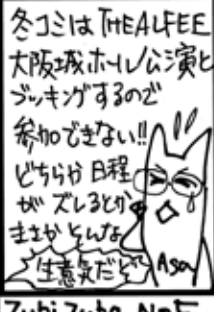 冬コミは THE ALFEE
大阪城ホール公演と
ブッキングするので
参加できない!!
どちらか日程
がズレるとか
まさかそんな
生意気だぞ
Asa